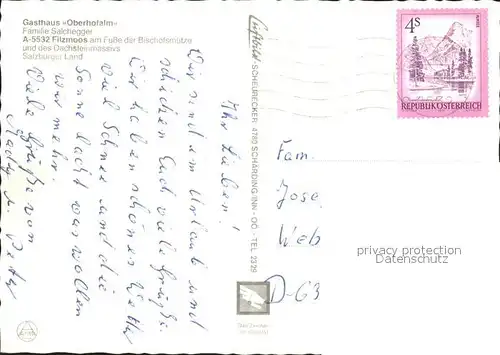 Gasthaus »Oberhofalm«
Familie Salchegger
A-5532 Filzmoos am Fuße der Bischofsmütze
und des Dachsteinmassivs
Salzburger Land
Ihr Lieben!
Wir sind im Urlaub und
schicken Euch viele Grüße.
Wir haben schönes Wetter
viel Schnee und die
Sonne lacht was wollen
wir mehr.
Viele Grüße von
SCHEURECKER 4780 SCHÄRDING INN - OÖ - TEL 2329
4S
REPUBLIK ÖSTERREICH
Fam.
Jose
Web
D-63
privacy protection
Datenschutz